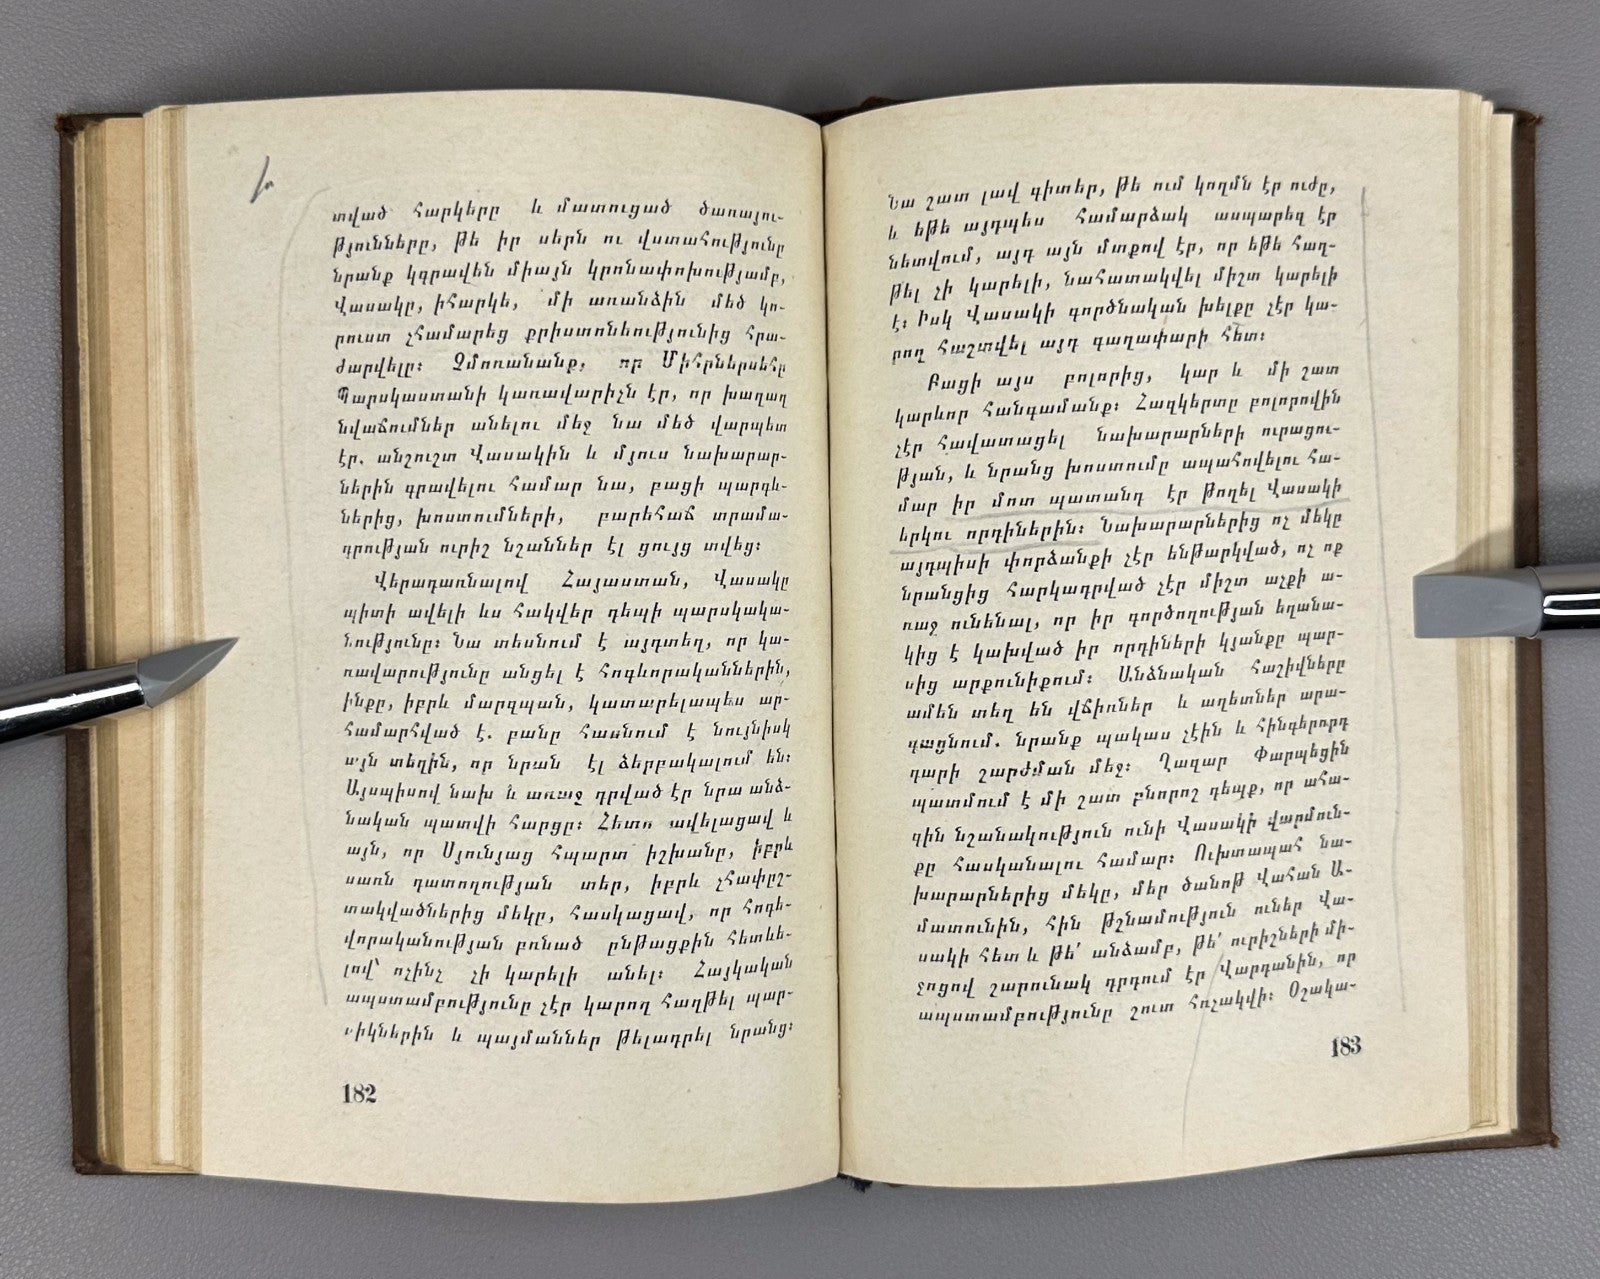 տված հարկերը և մատուցած ծառայու-
թյունները, թե իր սերն ու վստահությունը
նրանք կգրավեն միայն կրոնափոխությամբ,
Վասակը, իհարկե, մի առանձին մեծ կո-
րուստ չհամարեց քրիստոնեությունից հրա-
ժարվելը։ Չմոռանանք, որ Միհրներսեհը
Պարսկաստանի կառավարիչն էր, որ խաղաղ
նվաճումներ անելու մեջ նա մեծ վարպետ
էր. անշուշտ Վասակին և մյուս նախարար-
ներին գրավելու համար նա, բացի պարգև-
ներից, խոստումների, բարեհաճ տրամա-
դրության ուրիշ նշաններ էլ ցույց տվեց։
Վերադառնալով Հայաստան, Վասակը
պիտի ավելի ևս հակվեր դեպի պարսկակա-
նությունը։ Նա տեսնում է այդտեղ, որ կա-
ռավարությունը անցել է հոգևորականներին,
ինքը, իբրև մարզպան, կատարելապես ար-
համարհված է. բանը հասնում է նույնիսկ
այն տեղին, որ նրան էլ ձերբակալում են։
Այսպիսով նախ և առաջ դրված էր նրա անձ-
նական պատվի հարցը։ Հետո ավելացավ և
այն, որ Սյունյաց հպարտ իշխանը, իբրև
սառն դատողության տեր, իբրև չհափըշ-
տակվածներից մեկը, հասկացավ, որ հոգե-
վորականության բռնած ընթացքին հետևե-
լով՝ ոչինչ չի կարելի անել։ Հայկական
ապստամբությունը չէր կարող հաղթել պար-
սիկներին և պայմաններ թելադրել նրանց։
182
Նա շատ լավ գիտեր, թե ում կողմն էր ուժը,
և եթե այդպես համարձակ ասպարեզ էր
նետվում, այդ այն մտքով էր, որ եթե հաղ-
թել չի կարելի, նահատակվել միշտ կարելի
է։ Իսկ Վասակի գործնական խելքը չէր կա-
րող հաշտվել այդ գաղափարի հետ։
Բացի այս բոլորից, կար և մի շատ
կարևոր հանգամանք։ Հազկերտը բոլորովին
չէր հավատացել նախարարների ուրացու-
թյան, և նրանց խոստումը ապահովելու հա-
մար իր մոտ պատանդ էր թողել Վասակի
երկու որդիներին։ Նախարարներից ոչ մեկը
այդպիսի փորձանքի չէր ենթարկված, ոչ ոք
նրանցից հարկադրված չէր միշտ աչքի ա-
ռաջ ունենալ, որ իր գործողության եղանա-
կից է կախված իր որդիների կյանքը պար-
սից արքունիքում։ Անձնական հաշիվները
ամեն տեղ են վճիռներ և աղետներ արա-
գացնում. նրանք պակաս չէին և հինգերորդ
դարի շարժման մեջ։ Ղազար Փարպեցին
պատմում է մի շատ բնորոշ դեպք, որ ահա-
գին նշանակություն ունի Վասակի վարմուն-
քը հասկանալու համար։ Ուխտապահ նա-
խարարներից մեկը, մեր ծանոթ Վահան Ա-
մատունին, հին թշնամություն ուներ Վա-
սակի հետ և թե՛ անձամբ, թե՛ ուրիշների մի-
ջոցով շարունակ դրդում էր Վարդանին, որ
ապստամբությունը շուտ հռչակվի։ Օշակա-
183